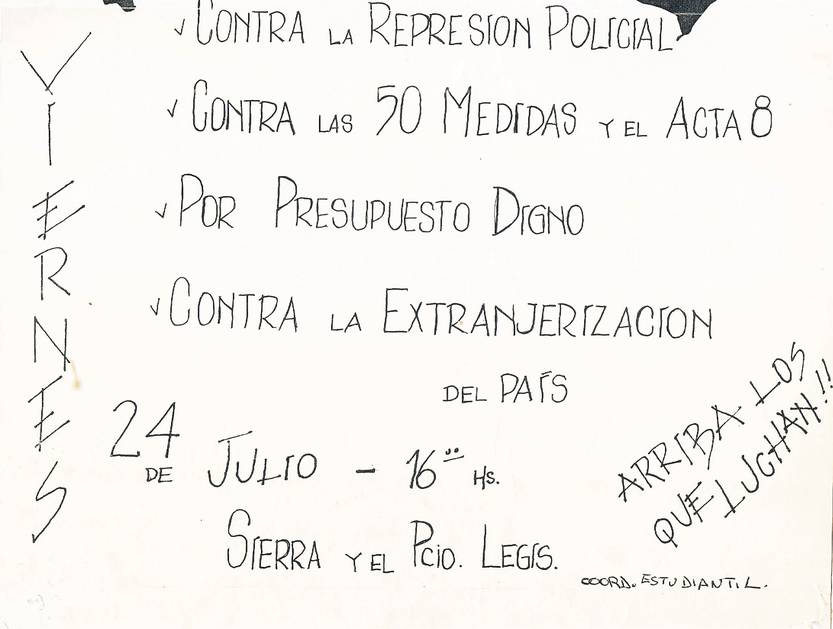 VIERNES
✓ CONTRA LA REPRESION POLICIAL
✓ CONTRA LAS 50 MEDIDAS Y EL ACTA 8
✓ POR PRESUPUESTO DIGNO
✓ CONTRA LA EXTRANJERIZACION
DEL PAÍS
24 DE JULIO - 16:00 HS.
SIERRA Y EL PCIO. LEGIS.
ARRIBA LOS
QUE LUCHAN!!
COORD. ESTUDIANTIL.